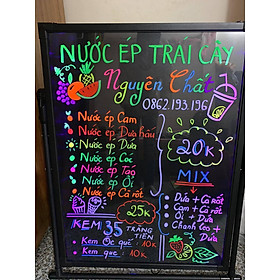 NƯỚC ÉP TRÁI CÂY
Nguyên Chất
0862.193.196
Nước ép Cam
Nước ép Dưa hấu
Nước ép Dứa
Nước ép Cóc
Nước ép Táo
Nước ép Ổi
Nước ép Cà rốt
20K
MIX
Dứa + Cà Rốt
Cam + Cà rốt
Ổi + Dứa
Chanh Leo + Dứa
25K
KEM 35 TRÀNG TIỀN
Kem Ốc quế 10K
Kem que 10K